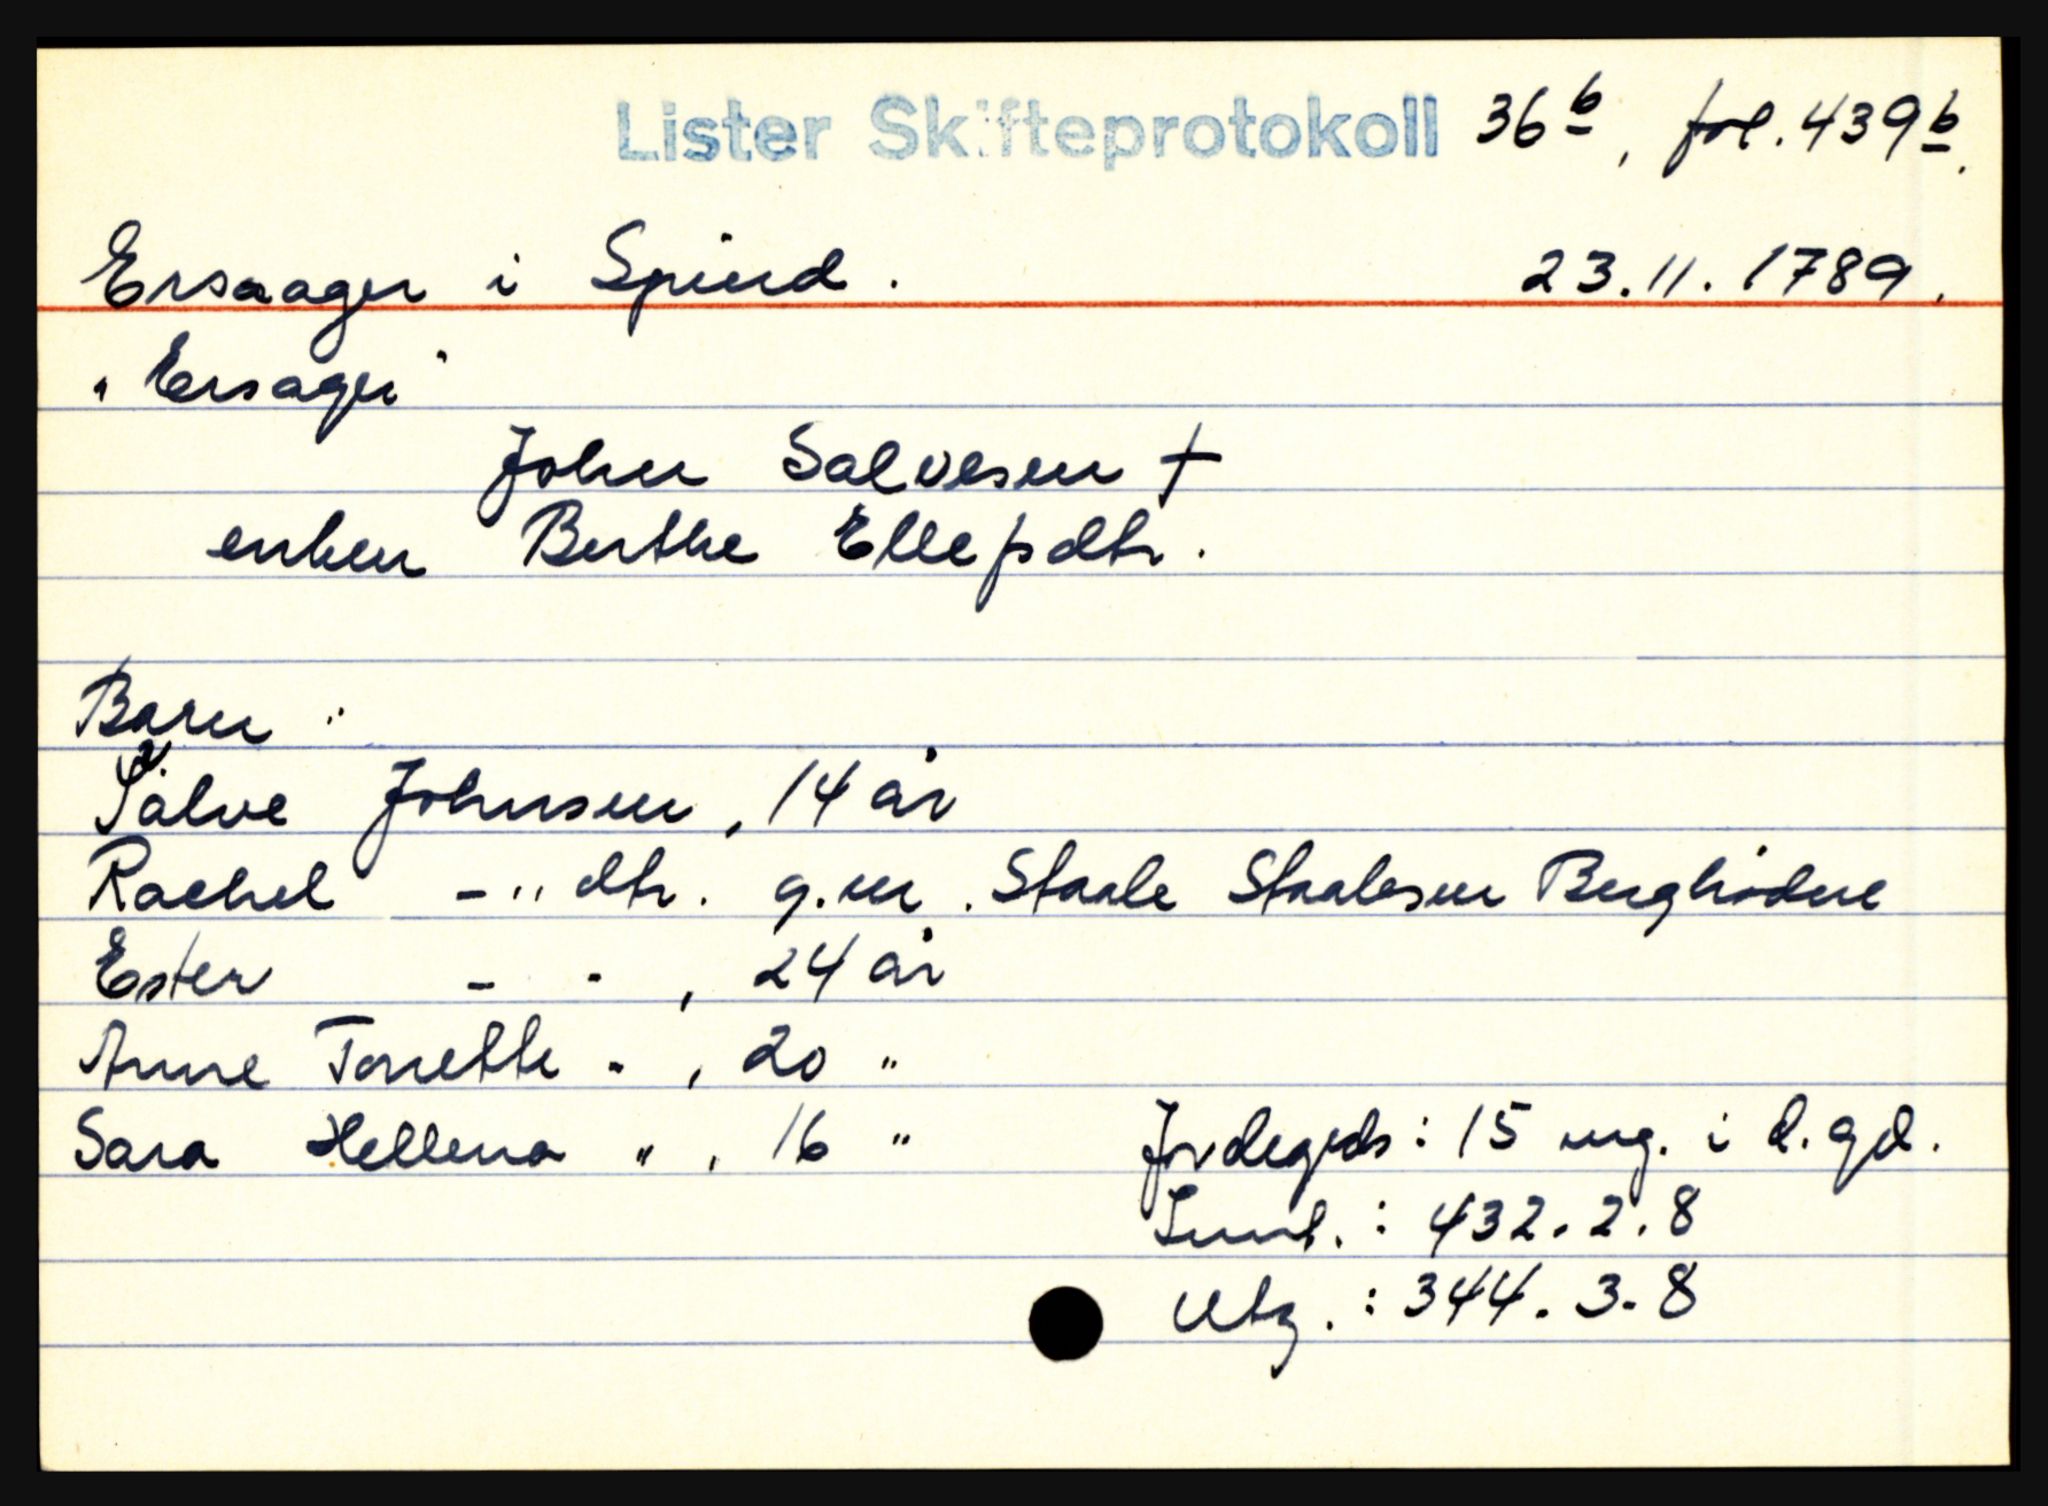 Lister Skifteprotokoll 36b, fol. 439b.
Ersaager i Spind. 23.11.1789.
"Ersager"
John Salvesen †
enken Berthe Ellefsdtr.
Barn:
Salve Johnsen, 14 år
Rachel -"dtr. g.m. Staale Staalesen
Ester - - , 24 år
Anne Tonette - , 20 "
Sara Hellena " , 16 " Jordegods: 15 mg. i d. gd.
: 432.2.8
Utg.: 344.3.8